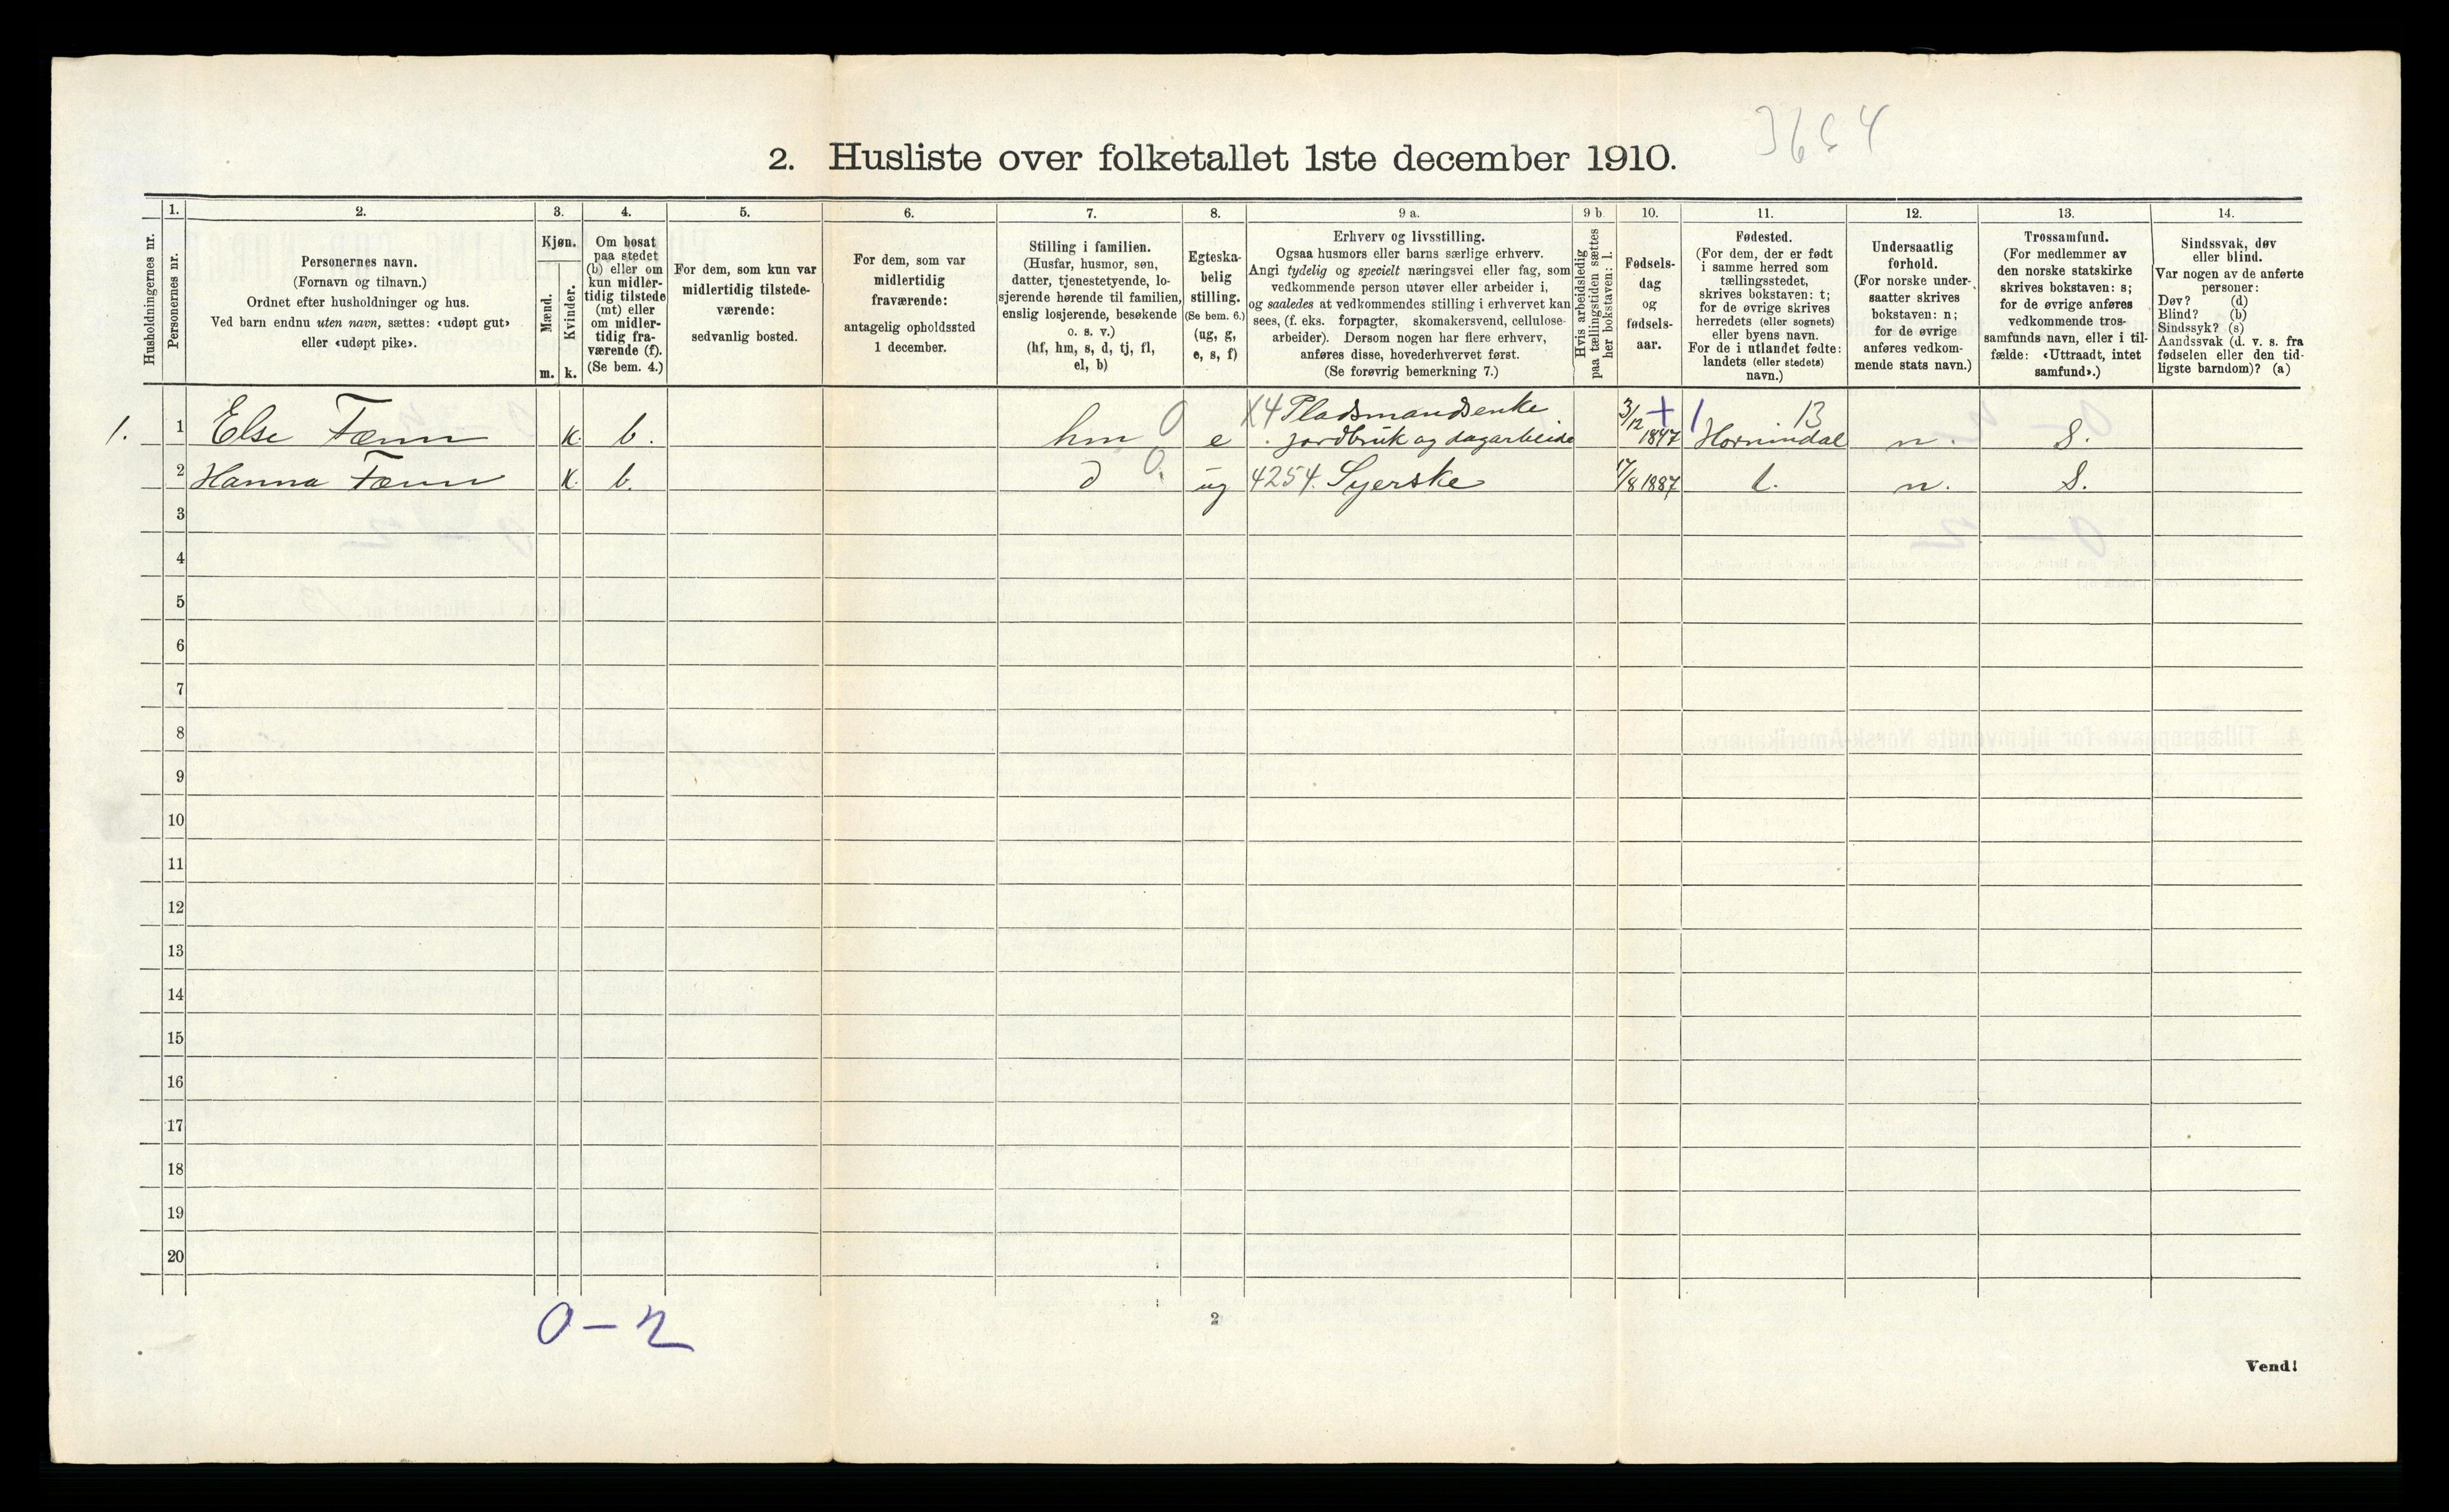 3664
2. Husliste over folketallet 1ste december 1910.
Husholdningernes nr.
1.
Personernes nr.
2.
Personernes navn.
(Fornavn og tilnavn.)
Ordnet efter husholdninger og hus.
Ved barn endnu uten navn, sættes: «udøpt gut»
eller «udøpt pike».
3.
Kjøn.
Mænd.
Kvinder.
m. k.
4.
Om bosat
paa stedet
(b) eller om
kun midler-
tidig tilstede
(mt) eller
om midler-
tidig fra-
værende (f).
(Se bem. 4.)
5.
For dem, som kun var
midlertidig tilstede-
værende:
sedvanlig bosted.
6.
For dem, som var
midlertidig
fraværende:
antagelig opholdssted
1 december.
7.
Stilling i familien.
(Husfar, husmor, søn,
datter, tjenestetyende, lo-
sjerende hørende til familien,
enslig losjerende, besøkende
o. s. v.)
(hf, hm, s, d, tj, fl,
el, b)
8.
Egteska-
belig
stilling.
(Se bem. 6.)
(ug, g,
e, s, f)
9 a.
Erhverv og livsstilling.
Ogsaa husmors eller barns særlige erhverv.
Angi tydelig og specielt næringsvei eller fag, som
vedkommende person utøver eller arbeider i,
og saaledes at vedkommendes stilling i erhvervet kan
sees, (f. eks. forpagter, skomakersvend, cellulose-
arbeider). Dersom nogen har flere erhverv,
anføres disse, hovederhvervet først.
(Se forøvrig bemerkning 7.)
9 b
Hvis arbeidsledig
paa tællingstiden sættes
her bokstaven: l.
10.
Fødsels-
dag
og
fødsels-
aar.
11.
Fødested.
(For dem, der er født
i samme herred som
tællingsstedet,
skrives bokstaven: t;
for de øvrige skrives
herredets (eller sognets)
eller byens navn.
For de i utlandet fødte:
landets (eller stedets)
navn.)
12.
Undersaatlig
forhold.
(For norske under-
saatter skrives
bokstaven: n;
for de øvrige
anføres vedkom-
mende stats navn.)
13.
Trossamfund.
(For medlemmer av
den norske statskirke
skrives bokstaven: s;
for de øvrige anføres
vedkommende tros-
samfunds navn, eller i til-
fælde: «Uttraadt, intet
samfund».)
14.
Sindssvak, døv
eller blind.
Var nogen av de anførte
personer:
Døv? (d)
Blind? (b)
Sindssyk? (s)
Aandssvak (d. v. s. fra
fødselen eller den tid-
ligste barndom)? (a)
1. 1 Else Tænn k. b. hm 0 e X4 Pladsmandsenke jordbruk og dagarbeide 3/12 1847 + 1 13 Hornindal n. S.
2 Hanna Tænn k. b. d 0. ug 4254. Syerske 17/8 1887 t. n. S.
3
4
5
6
7
8
9
10
11
12
13
14
15
16
17
18
19
20
0 – 2
2
Vend!